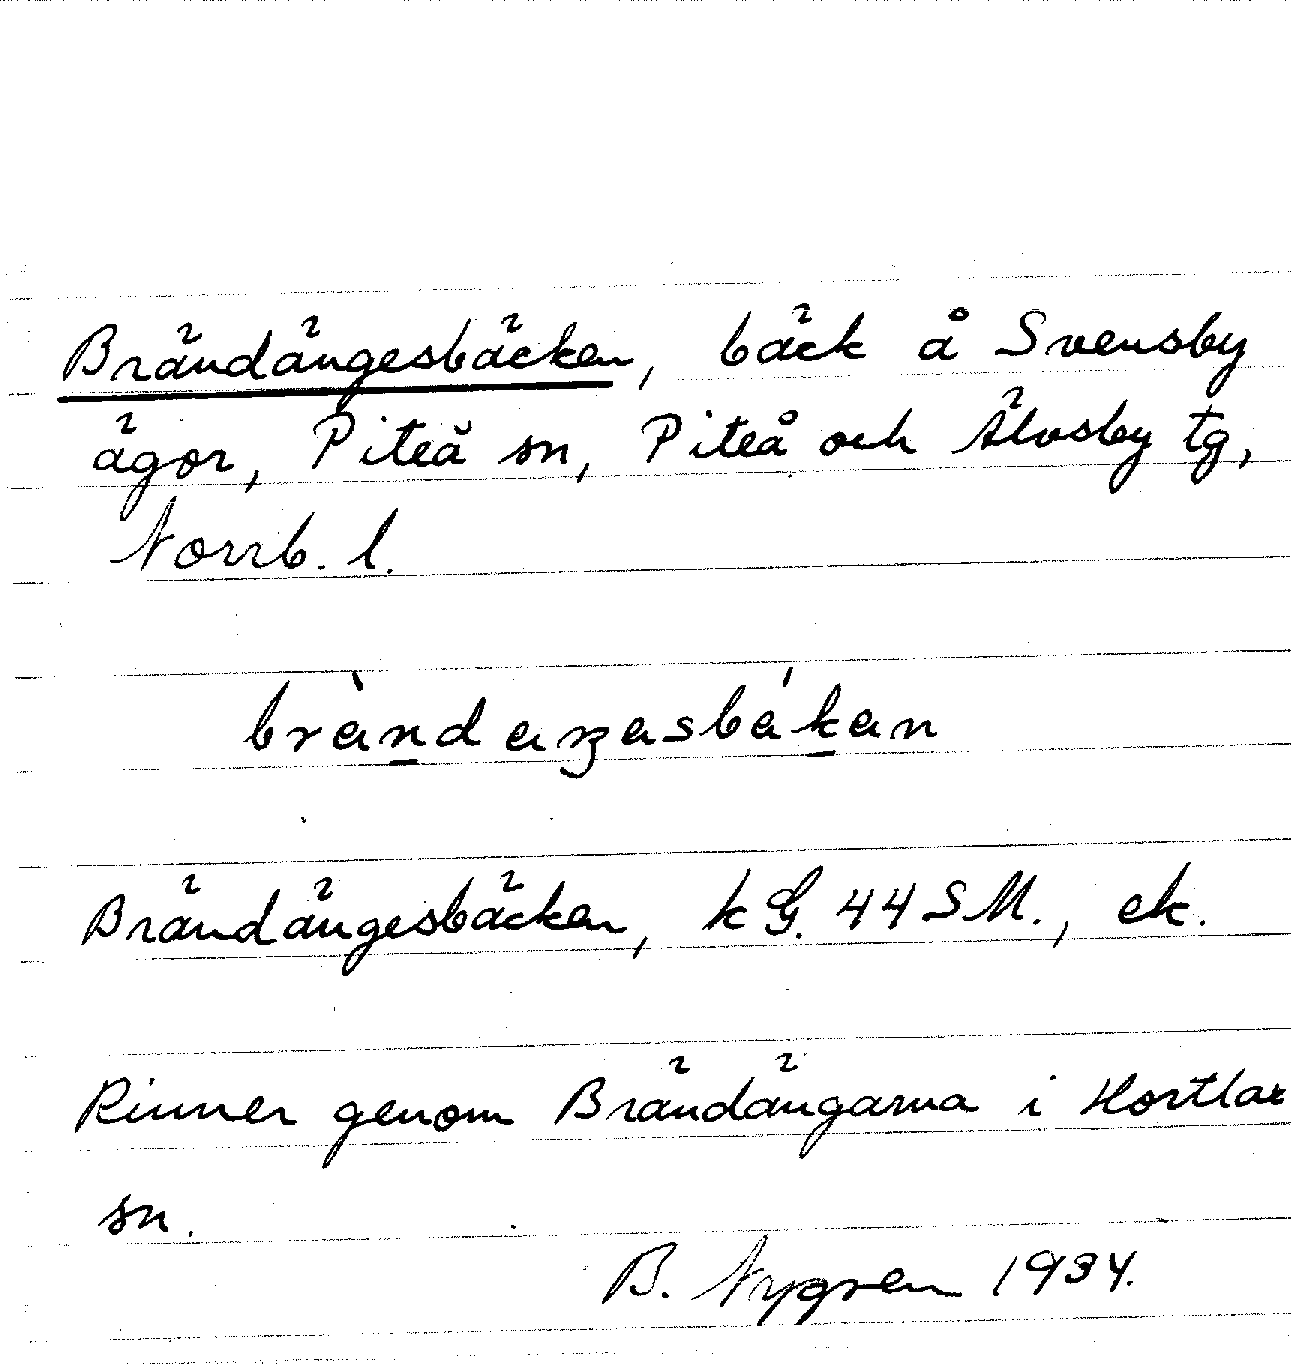 Brändängesbäcken, bäck å Svensby
ägor, Piteå sn, Piteå och Älvsby tg,
Norrb. l.
brandaŋasbakan
Brändängesbäcken, kG. 44 SM., ek.
Rinner genom Brändängarna i Hortlax
sn.
B. Nygren 1934.